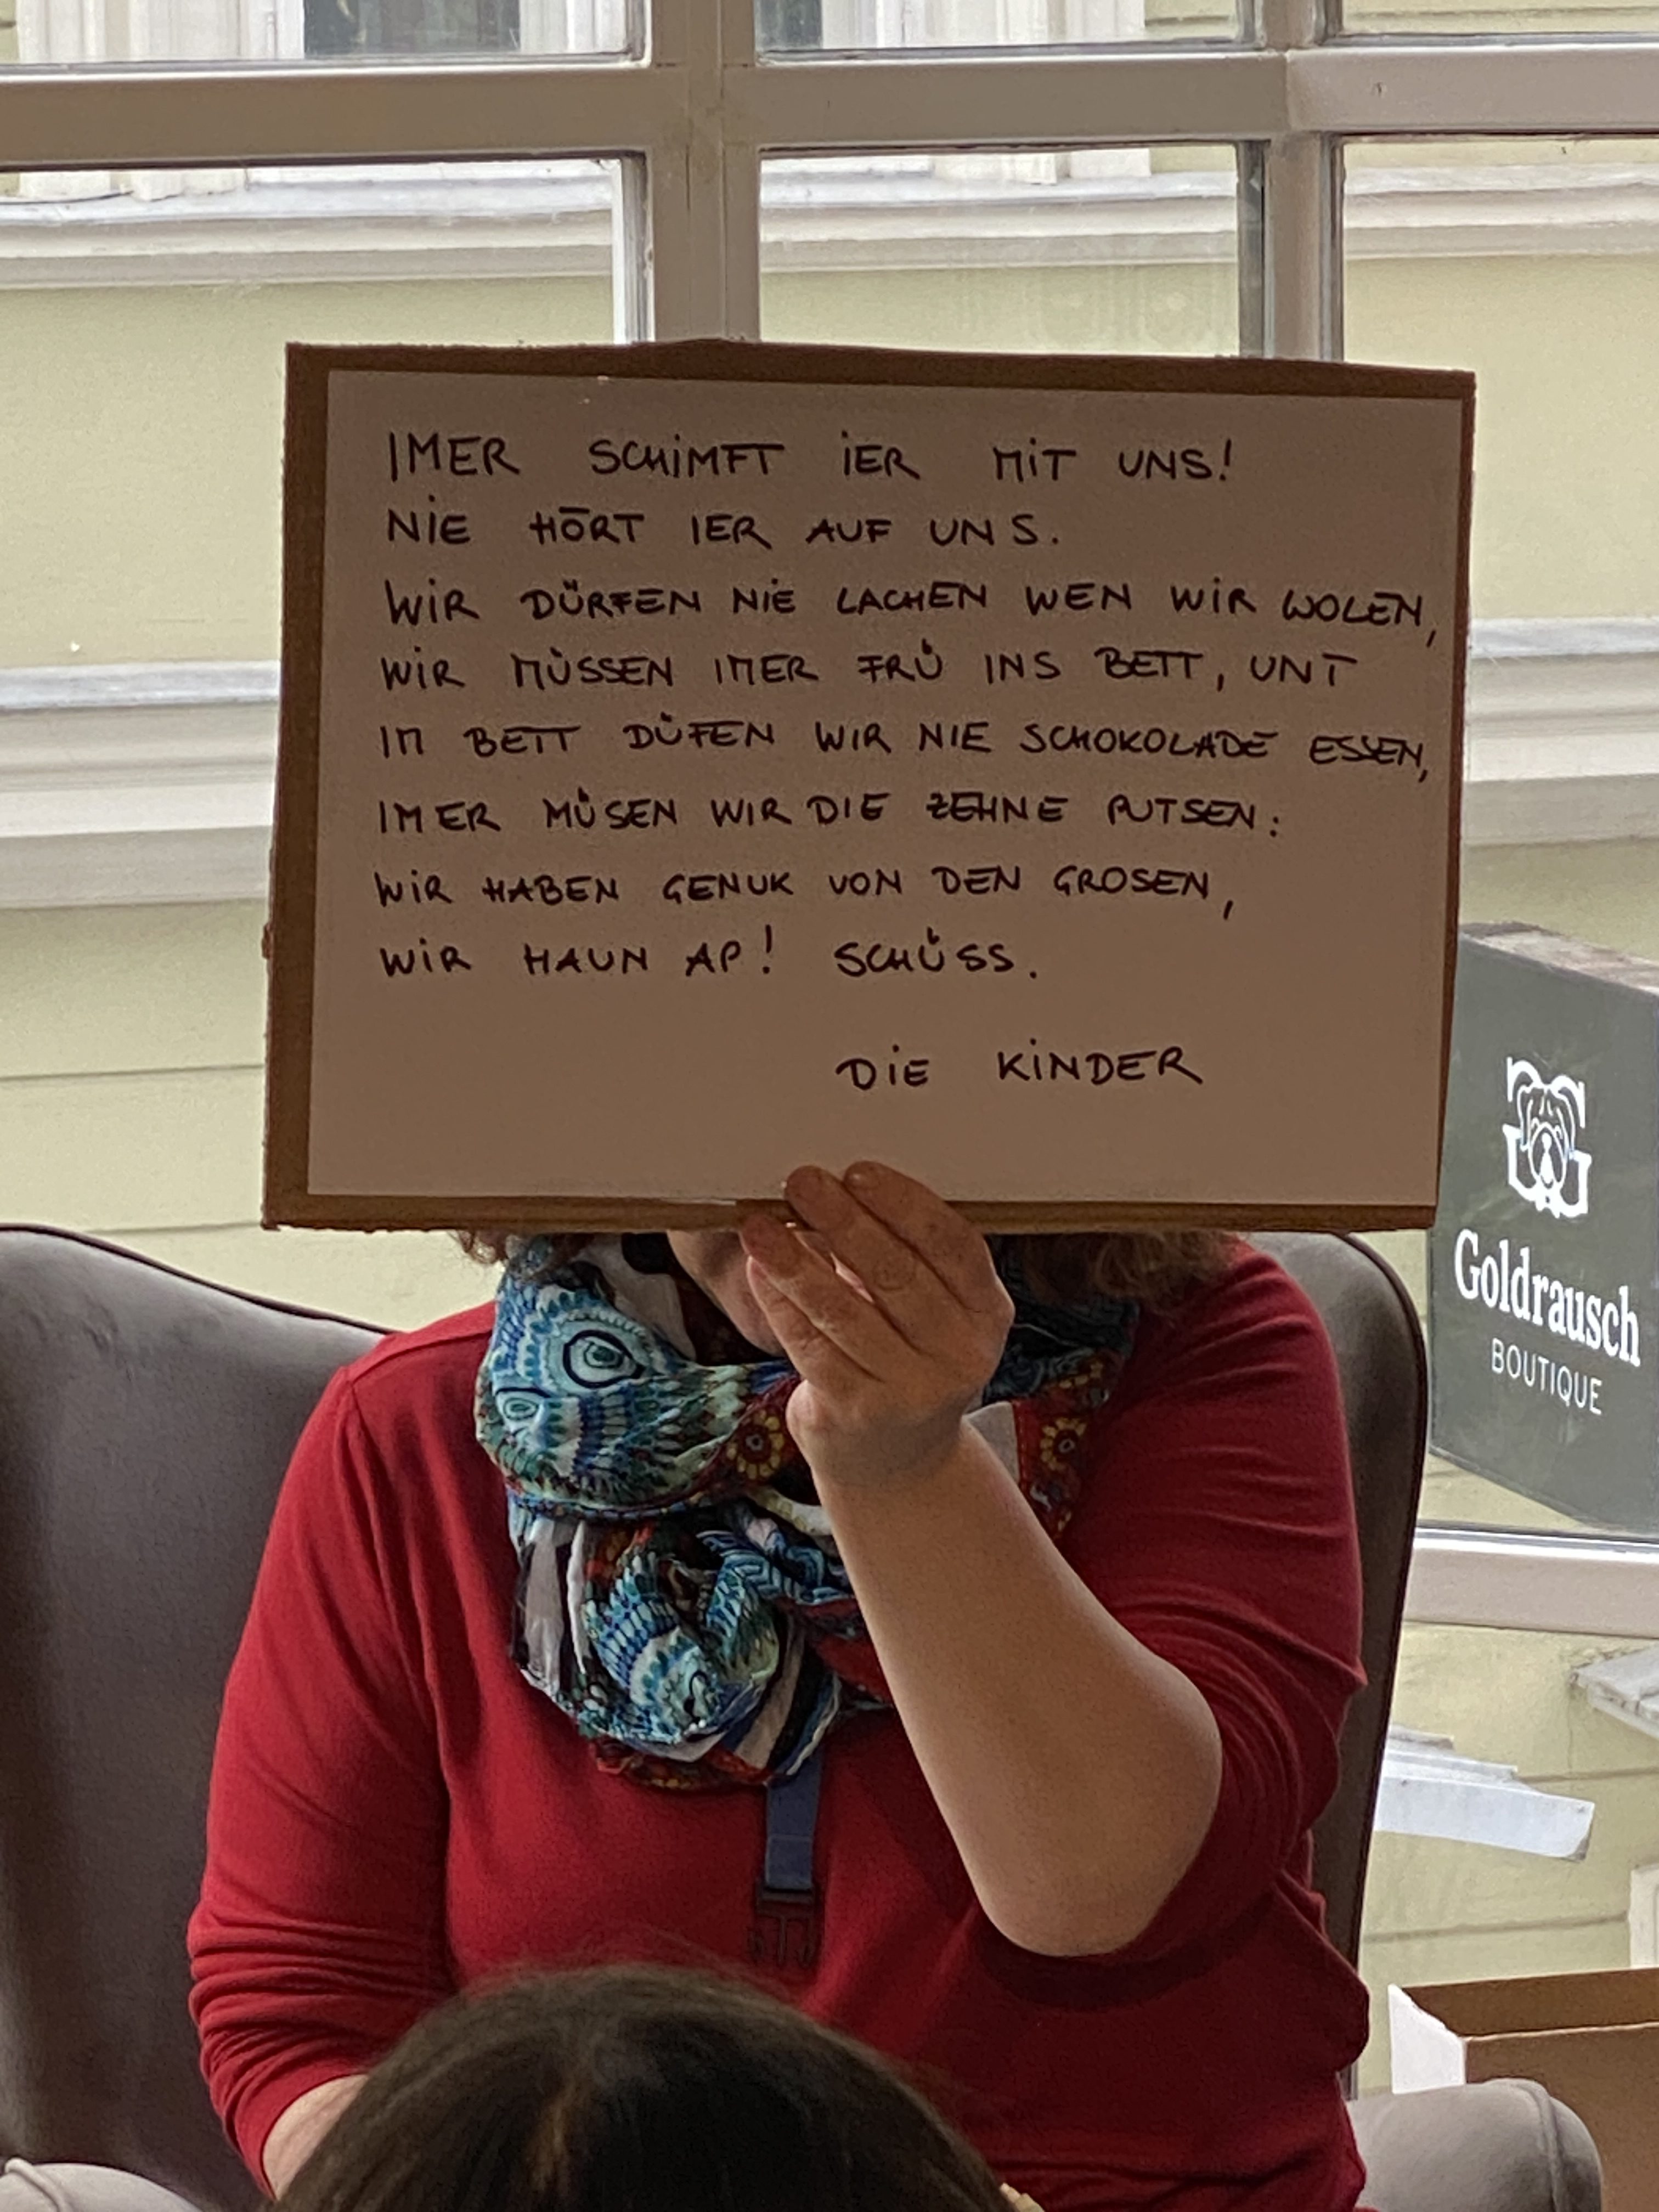 IMER SCHIMFT IER MIT UNS!
NIE HÖRT IER AUF UNS.
WIR DÜRFEN NIE LACHEN WEN WIR WOLEN,
WIR MÜSSEN IMER FRÜ INS BETT, UNT
IM BETT DÜFEN WIR NIE SCHOKOLADE ESSEN,
IMER MÜSEN WIR DIE ZEHNE PUTSEN:
WIR HABEN GENUK VON DEN GROSEN,
WIR HAUN AP! SCHÜSS.
DIE KINDER
Goldrausch
BOUTIQUE